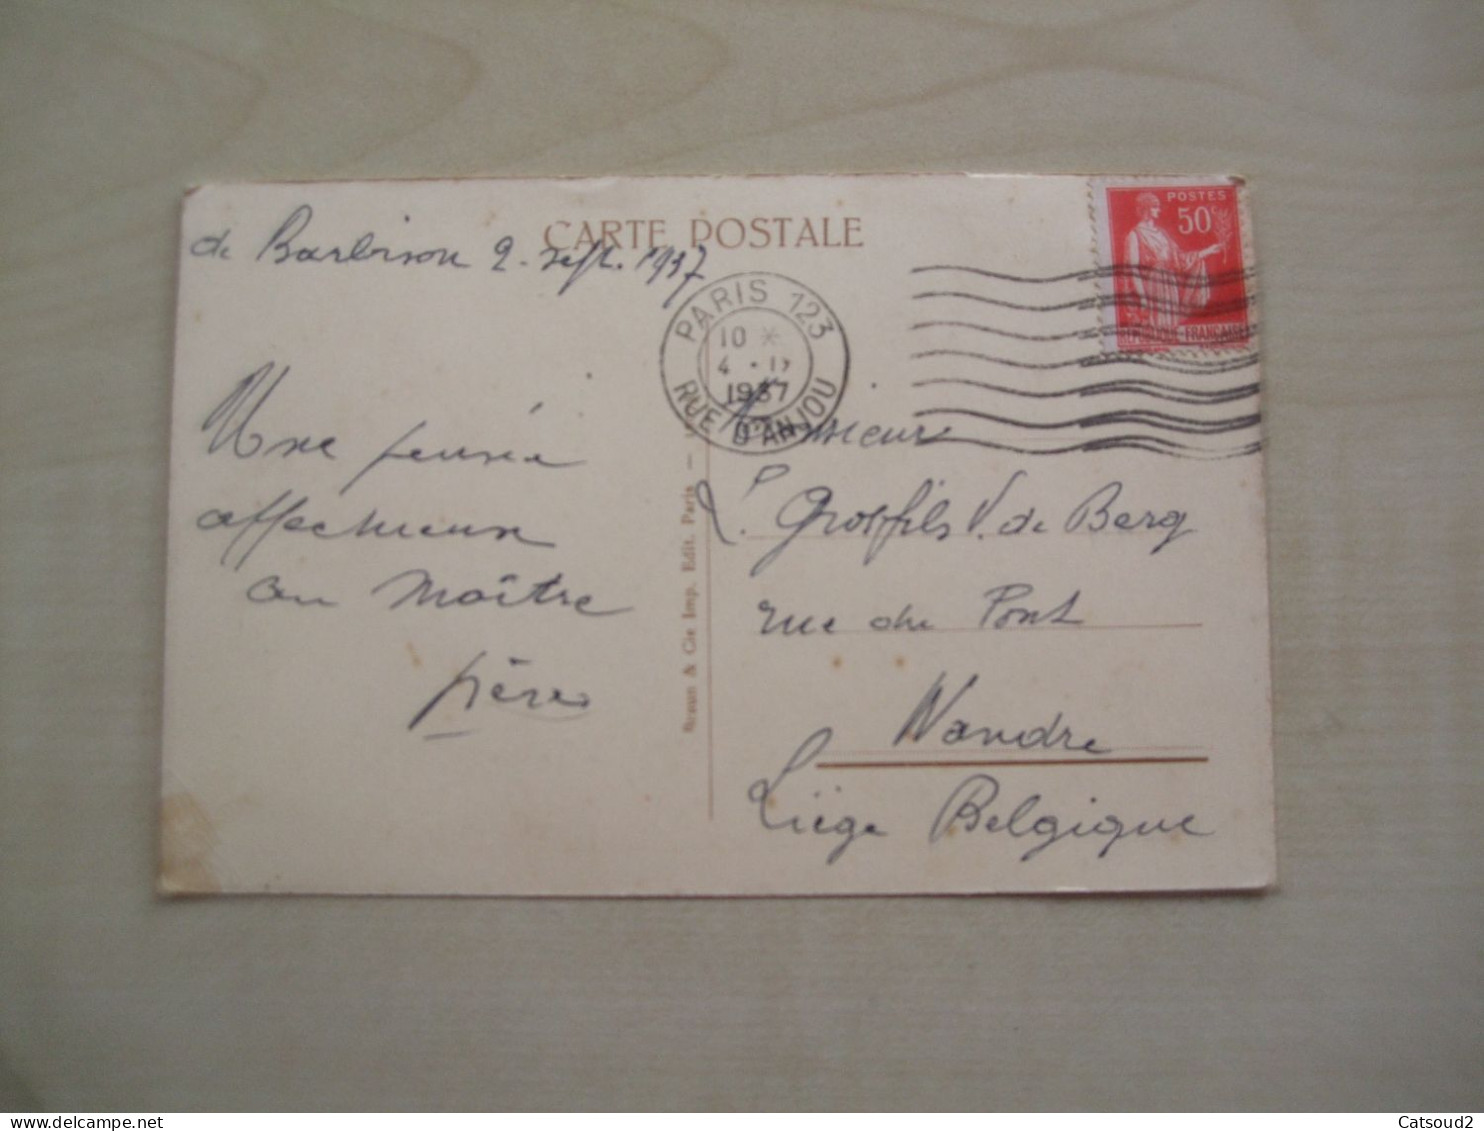 CARTE POSTALE
de Barbizon 2. sept. 1937
POSTES
50c
REPUBLIQUE-FRANÇAISE
PARIS 123
10 *
4 - IX
1937
RUE D'ANJOU
Une pensée
affectueuse
au Maître
père
Braun & Cie Imp. Edit. Paris
Monsieur
Grosfils V. de Berg
rue du Pont
Wandre
Liège Belgique
Catsoud2